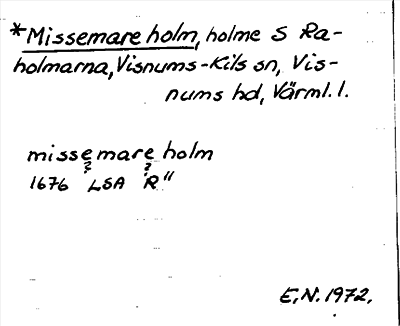 *Missemare holm, holme S Ra-
holmarna, Visnums-Kils sn, Vis-
nums hd, Värml. l.
missemare holm
? ?
1676 LSA R"
E.N. 1972.